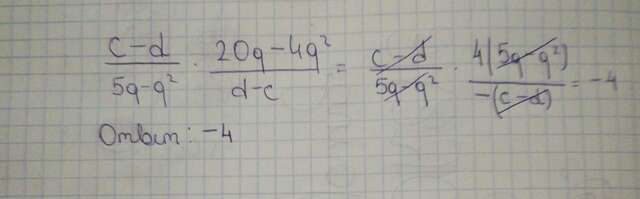 c-d/5q-q² · 20q-4q²/d-c = c-d/5q-q² · 4(5q-q²)/-(c-d) = -4
Ответ: -4